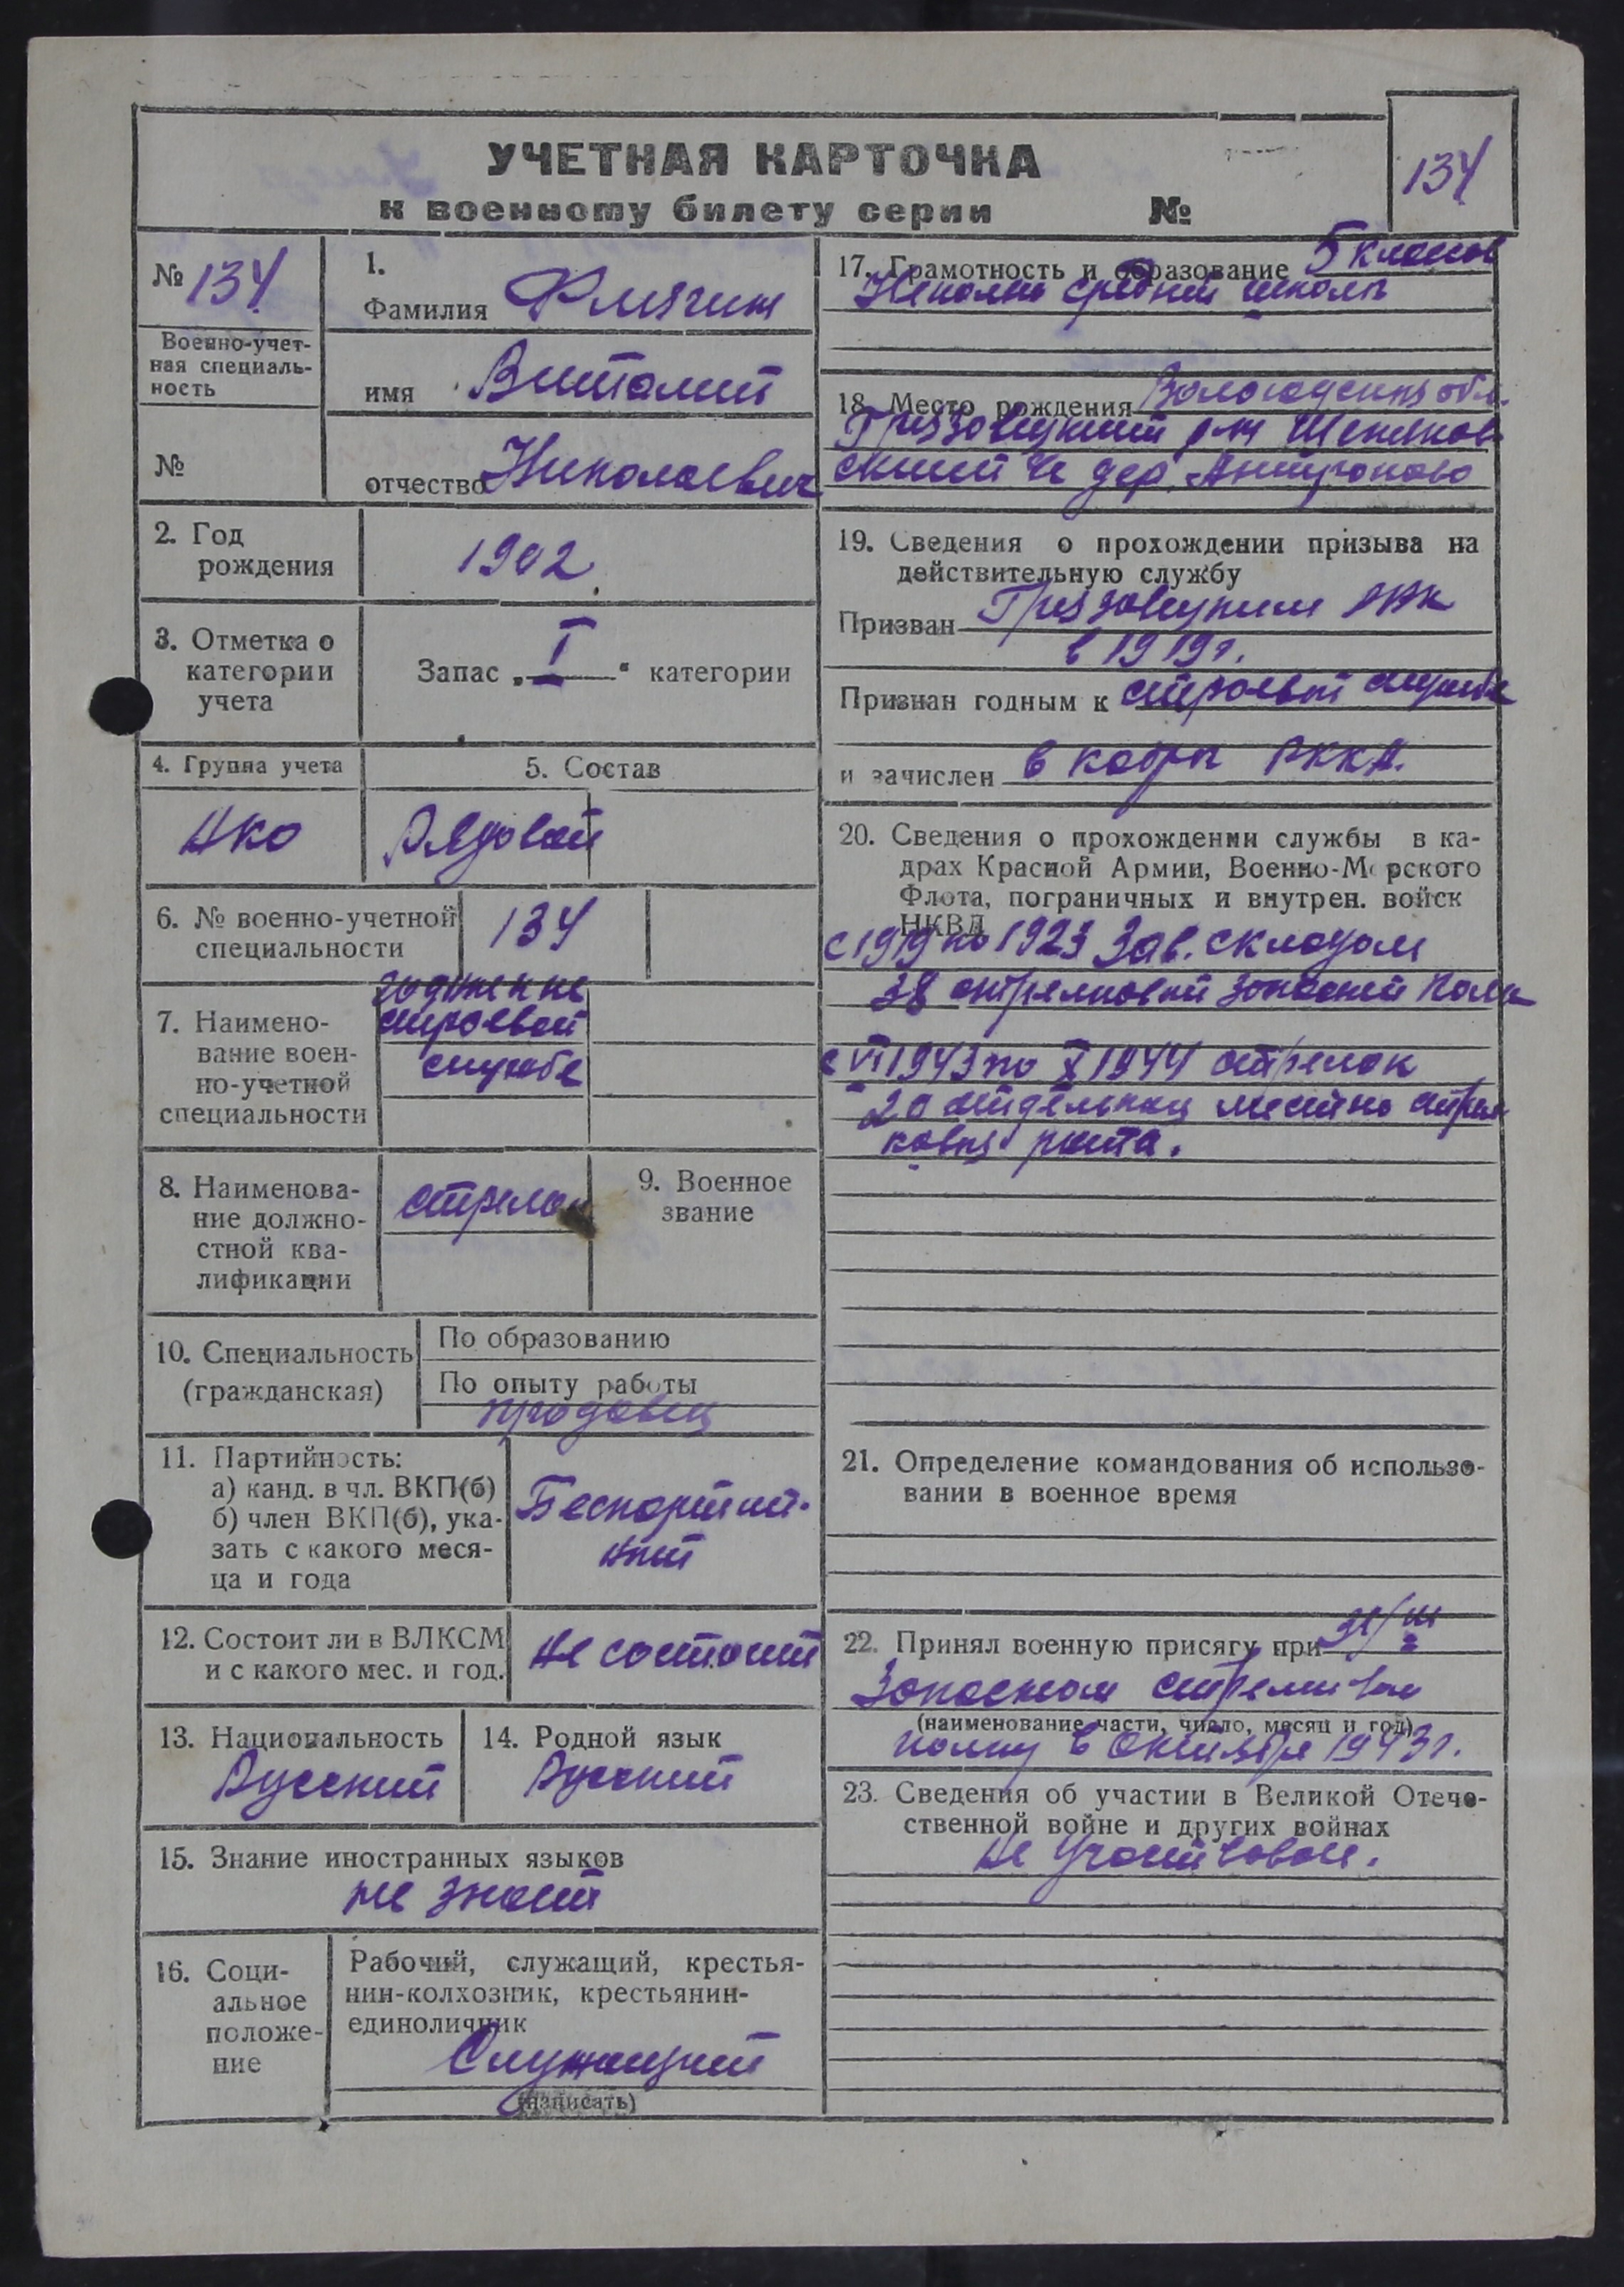 134
УЧЕТНАЯ КАРТОЧКА
к военному билету серии №
№ 134
Военно-учет-
ная специаль-
ность
№
1.
Фамилия
имя Виталий
отчество Николаевич
2. Год
рождения
1902
3. Отметка о
категории
учета
Запас „ I “ категории
4. Группа учета
АКО
5. Состав
Рядовой
6. № военно-учетной
специальности
134
7. Наимено-
вание воен-
но-учетной
специальности
строевой
службе
8. Наименова-
ние должно-
стной ква-
лификации
стрелок
9. Военное
звание
10. Специальность
(гражданская)
По образованию
По опыту работы
продавец
11. Партийность:
а) канд. в чл. ВКП(б)
б) член ВКП(б), ука-
зать с какого меся-
ца и года
Беспартий-
ный
12. Состоит ли в ВЛКСМ
и с какого мес. и год.
не состоит
13. Национальность
Русский
14. Родной язык
Русский
15. Знание иностранных языков
не знает
16. Соци-
альное
положе-
ние
Рабочий, служащий, крестья-
нин-колхозник, крестьянин-
единоличник
Служащий
(написать)
17. Грамотность и образование 5 классов
Неполно средней школы
18. Место рождения Вологодская обл.
Грязовецкий р-н
с/с дер. Антропово
19. Сведения о прохождении призыва на
действительную службу
Призван Грязовецким РВК
в 1919 г.
Признан годным к строевой службе
и зачислен в кадры РККА.
20. Сведения о прохождении службы в ка-
драх Красной Армии, Военно-Морского
Флота, пограничных и внутрен. войск
НКВД
с 1919 по 1923 Зав. складом
38 стрелковый запасной полк
с VI 1943 по X 1944 стрелок
20 отдельная местно стрел
ковая рота.
21. Определение командования об использо-
вании в военное время
22. Принял военную присягу при
Запасном стрелковом
(наименование части, число, месяц и год)
полку в октябре 1943 г.
23. Сведения об участии в Великой Отече-
ственной войне и других войнах
не участвовал.